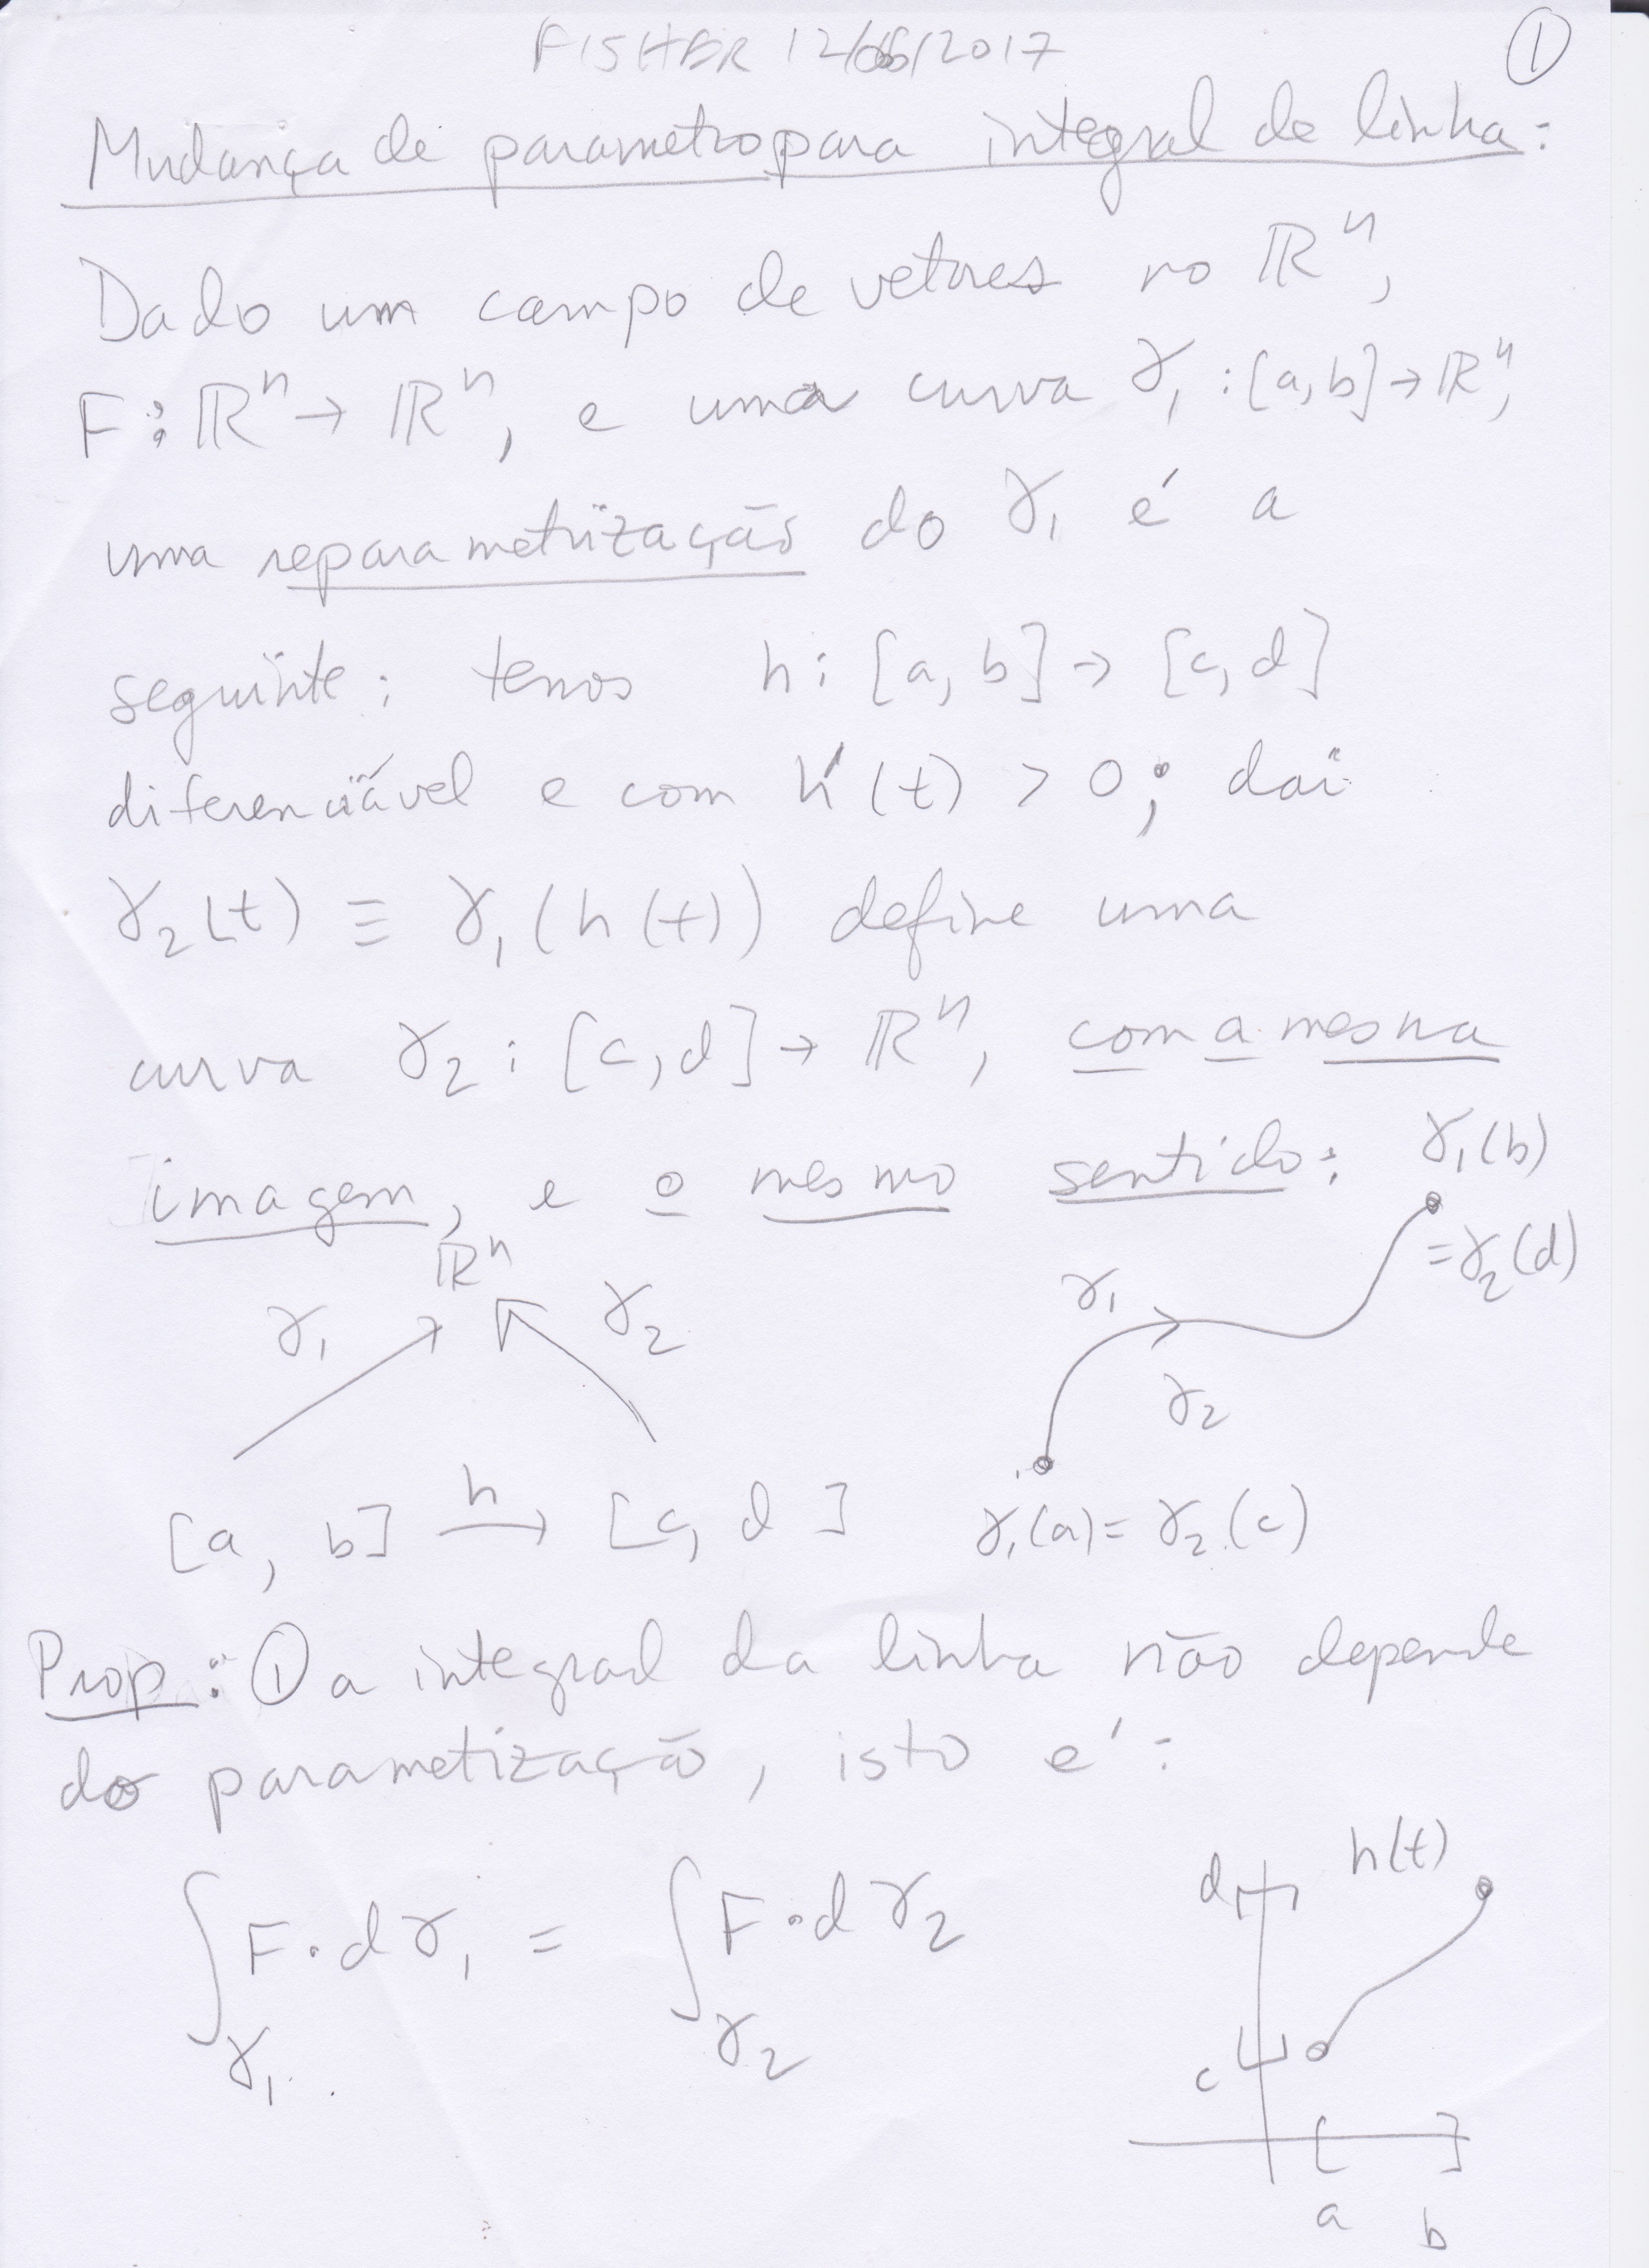 FISHER 12/06/2017 ①
Mudança de parametro para integral de linha:
Dado um campo de vetores no ℝⁿ,
F: ℝⁿ → ℝⁿ, e uma curva γ₁: [a,b] → ℝⁿ,
uma reparametrização do γ₁ é a
seguinte: temos h: [a, b] → [c, d]
diferenciável e com h'(t) > 0; daí
γ₂(t) ≡ γ₁(h(t)) define uma
curva γ₂: [c,d] → ℝⁿ, com a mesma
imagem, e o mesmo sentido:
γ₁(b)
= γ₂(d)
ℝⁿ
γ₁ γ₂
γ₁
γ₂
[a, b] h→ [c, d]
γ₁(a) = γ₂(c)
Prop: ① a integral da linha não depende
do parametização, isto é:
∫γ₁ F·dγ₁ = ∫γ₂ F·dγ₂
h(t)
d
c
a b